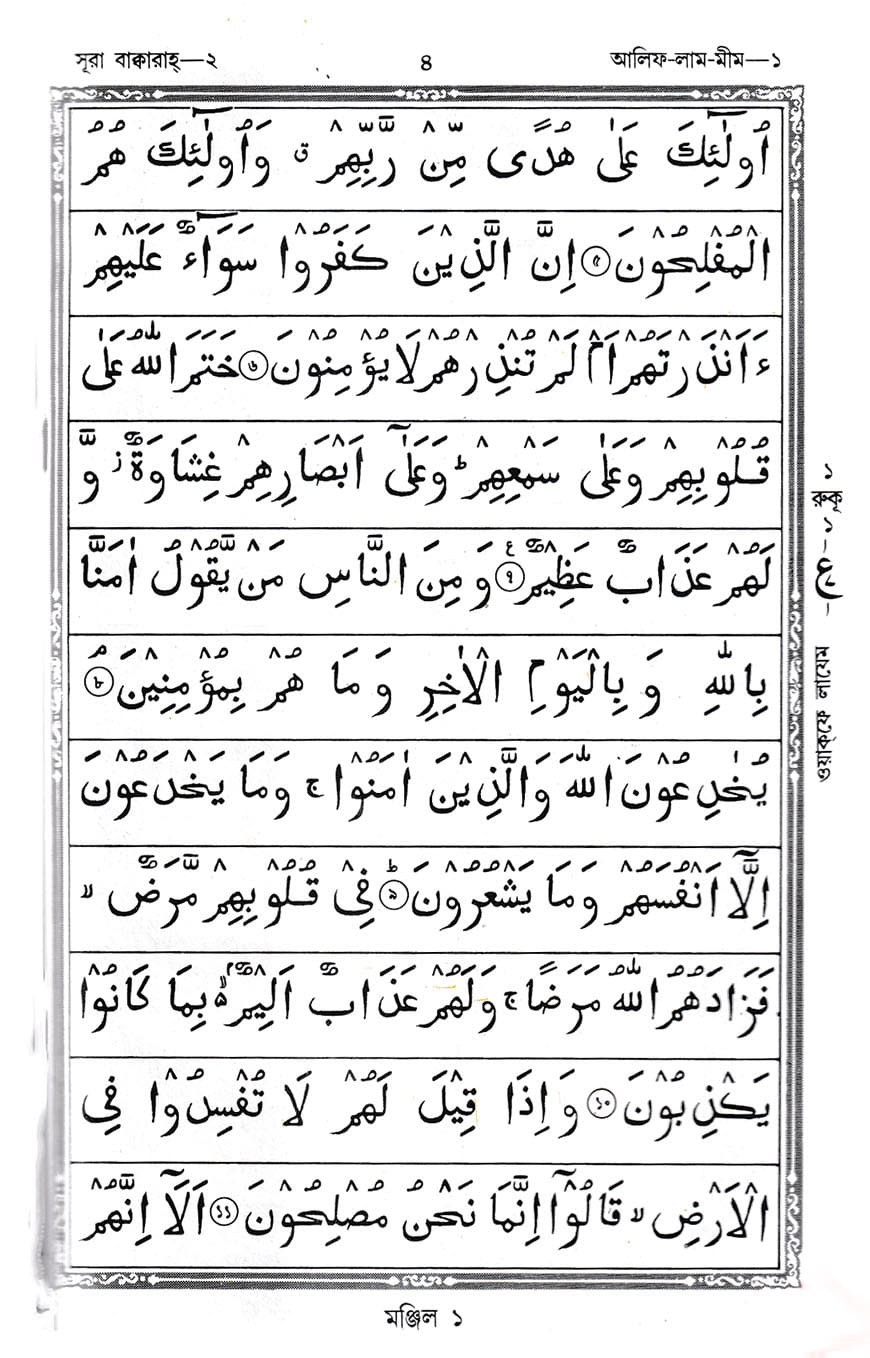 সূরা বাক্বারাহ্—২ ৪ আলিফ-লাম-মীম—১
اُولٰٓئِكَ عَلٰى هُدًى مِّنْ رَّبِّهِمْ ۗ وَاُولٰٓئِكَ هُمُ
الْمُفْلِحُوْنَ ﴿৫﴾ اِنَّ الَّذِيْنَ كَفَرُوْا سَوَآءٌ عَلَيْهِمْ
ءَاَنْذَرْتَهُمْ اَمْ لَمْ تُنْذِرْهُمْ لَا يُؤْمِنُوْنَ ﴿৬﴾ خَتَمَ اللّٰهُ عَلٰى
قُلُوْبِهِمْ وَعَلٰى سَمْعِهِمْ ؕ وَعَلٰٓى اَبْصَارِهِمْ غِشَاوَةٌ ز وَّ
لَهُمْ عَذَابٌ عَظِيْمٌ ﴿৭﴾ ع وَمِنَ النَّاسِ مَنْ يَّقُوْلُ اٰمَنَّا
بِاللّٰهِ وَ بِالْيَوْمِ الْاٰخِرِ وَ مَا هُمْ بِمُؤْمِنِيْنَ ﴿৮﴾ ۘ
يُخٰدِعُوْنَ اللّٰهَ وَالَّذِيْنَ اٰمَنُوْا ۚ وَمَا يَخْدَعُوْنَ
اِلَّآ اَنْفُسَهُمْ وَمَا يَشْعُرُوْنَ ﴿৯﴾ ؕ فِيْ قُلُوْبِهِمْ مَّرَضٌ ۙ
فَزَادَهُمُ اللّٰهُ مَرَضًا ۚ وَلَهُمْ عَذَابٌ اَلِيْمٌ ۙ۬ بِمَا كَانُوْا
يَكْذِبُوْنَ ﴿১০﴾ وَ اِذَا قِيْلَ لَهُمْ لَا تُفْسِدُوْا فِي
الْاَرْضِ ۙ قَالُوْٓا اِنَّمَا نَحْنُ مُصْلِحُوْنَ ﴿১১﴾ اَلَآ اِنَّهُمْ
রুকূ ১
— ১ — ع —
ওয়াক্‌ফে লাযেম
মঞ্জিল ১